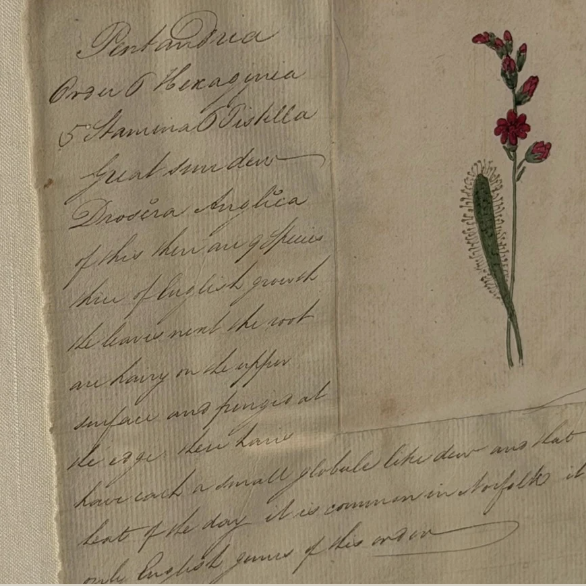 Pentandria
Order 6 Hexaginia
5 Stamina 6 Pistilla
Great sun dew
Drosera Anglica
of this there are 9 Species
three of English growth
the leaves next the root
are hairy on the upper
surface and fringed at
the edge, these hairs
have each a small globule like dew and that
heat of the day it is common in Norfolk it
only English genus of this order